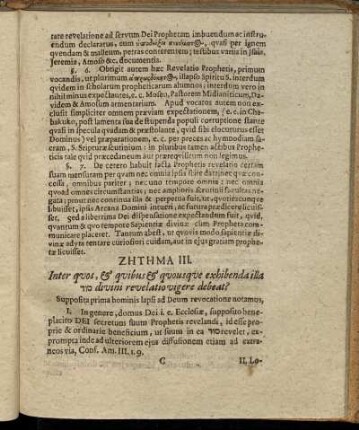 tate revelatione ad servum Dei Prophetam imbuendum ac instru-
endum declaratus, cum quasi per ignem
quendam & malleum, petras conterentem; testibus variis in Jesaia,
Jeremia, Amoso &c. documentis.
§. 6. Obtigit autem hæc Revelatio Prophetis, primum
vocandis, ut plurimum illapsu Spiritus. interdum
quidem in scholarum propheticarum alumnos; interdum vero in
nihil minus expectantes, e. c. Mosen, Pastorem Midianiticum, Da-
videm & Amosum armentarium. Apud vocatos autem non
exclusit simpliciter omnem præviam expectationem, (e. c. in Cha-
bakuko, post lamenta sua de stupenda populi corruptione stante
quasi in specula quadam & præstolante, quid sibi elocuturus esset
Dominus) vel præparationem, e. c. per preces ac hymnodiam sa-
cram, S. Scripturæ scrutinium: in pluribus tamen actibus Prophe-
ticis tale quid præcedaneum aut prærequisitum non legimus.
§. 7. De cætero habuit facta Prophetis revelatio certam
suam mensuram per quam nec omnia ipsis scire datum nec quæ con-
cessa, omnibus pariter; nec uno tempore omnia: nec omnia
quoad omnes circumstantias; nec amplioris
nec proin continua illa & perpetua fuit, ut quotiescunque
libuisset, ipsis Arcana Domini intrare, ac futura prædicere licuisset.
sed a liberrima Dei dispensatione expectandum fuit, quid,
quantum & quo tempore Sapientiæ divinæ cum Propheta com-
municare placeret. Tantum abest, ut quovis modo sapientiæ di-
vinæ adyta tentare curiosius cuidam, aut in ejus gratiam prophe-
tæ licuisset.
ΖΗΤΗΜΑ III.
Inter quos, & quibus & quousque exhibenda illa
divini revelatio vigere debeat?
Supposita prima hominis lapsi ad Deum revocatione notamus,
I. In genere, domus Dei i. e. Ecclesiæ, supposito bene-
placito DEI secretum suum Prophetis revelandi, id esse pro-
prie & ordinarie beneficium, ut suum in ea revelet, ex-
prompta inde ad ulteriorem ejus diffusionem etiam ad extra-
neos via, Conf. Am. III, 1. 9.
C
II. Lo-